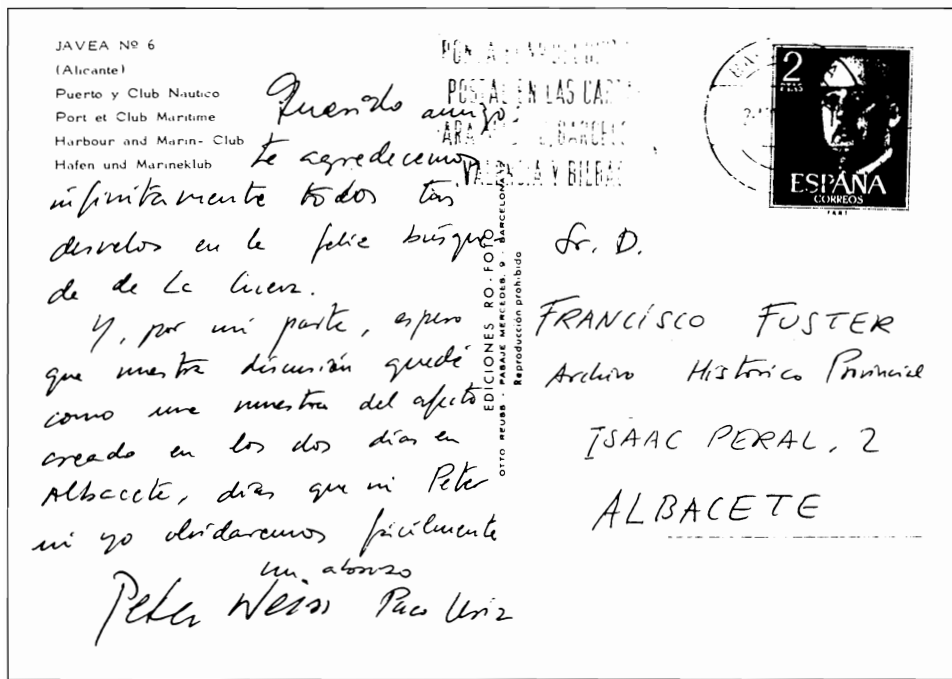 JAVEA Nº 6
(Alicante)
Puerto y Club Nautico
Port et Club Maritime
Harbour and Marin- Club
Hafen und Marineklub
Querido amigo:
te agradecemos
infinitamente todos tus
desvelos en la feliz búsque
da de La Cueva.
Y, por mi parte, espero
que nuestra discusión quede
como una muestra del afecto
creado en los dos días en
Albacete, días que ni Peter
ni yo olvidaremos fácilmente
un abrazo
Peter Weiss Paco Uriz
EDICIONES RO-FOTO
OTTO REUBB - PASAJE MERCEDES, 9 - BARCELONA
Reproducción prohibido
POSTAL EN LAS CARTAS
BARCELO
VALENCIA Y BILBAO
2
PTAS
ESPAÑA
CORREOS
Sr. D.
FRANCISCO FUSTER
Archivo Histórico Provincial
ISAAC PERAL, 2
ALBACETE